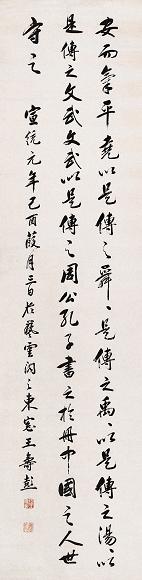 安而氣平堯以是傳之舜舜以是傳之禹禹以是傳之湯湯以
是傳之文武文武以是傳之周公孔子書之於冊中國之人世
守之
宣統元年己酉葭月三日於藜雲閣之東窓王壽彭